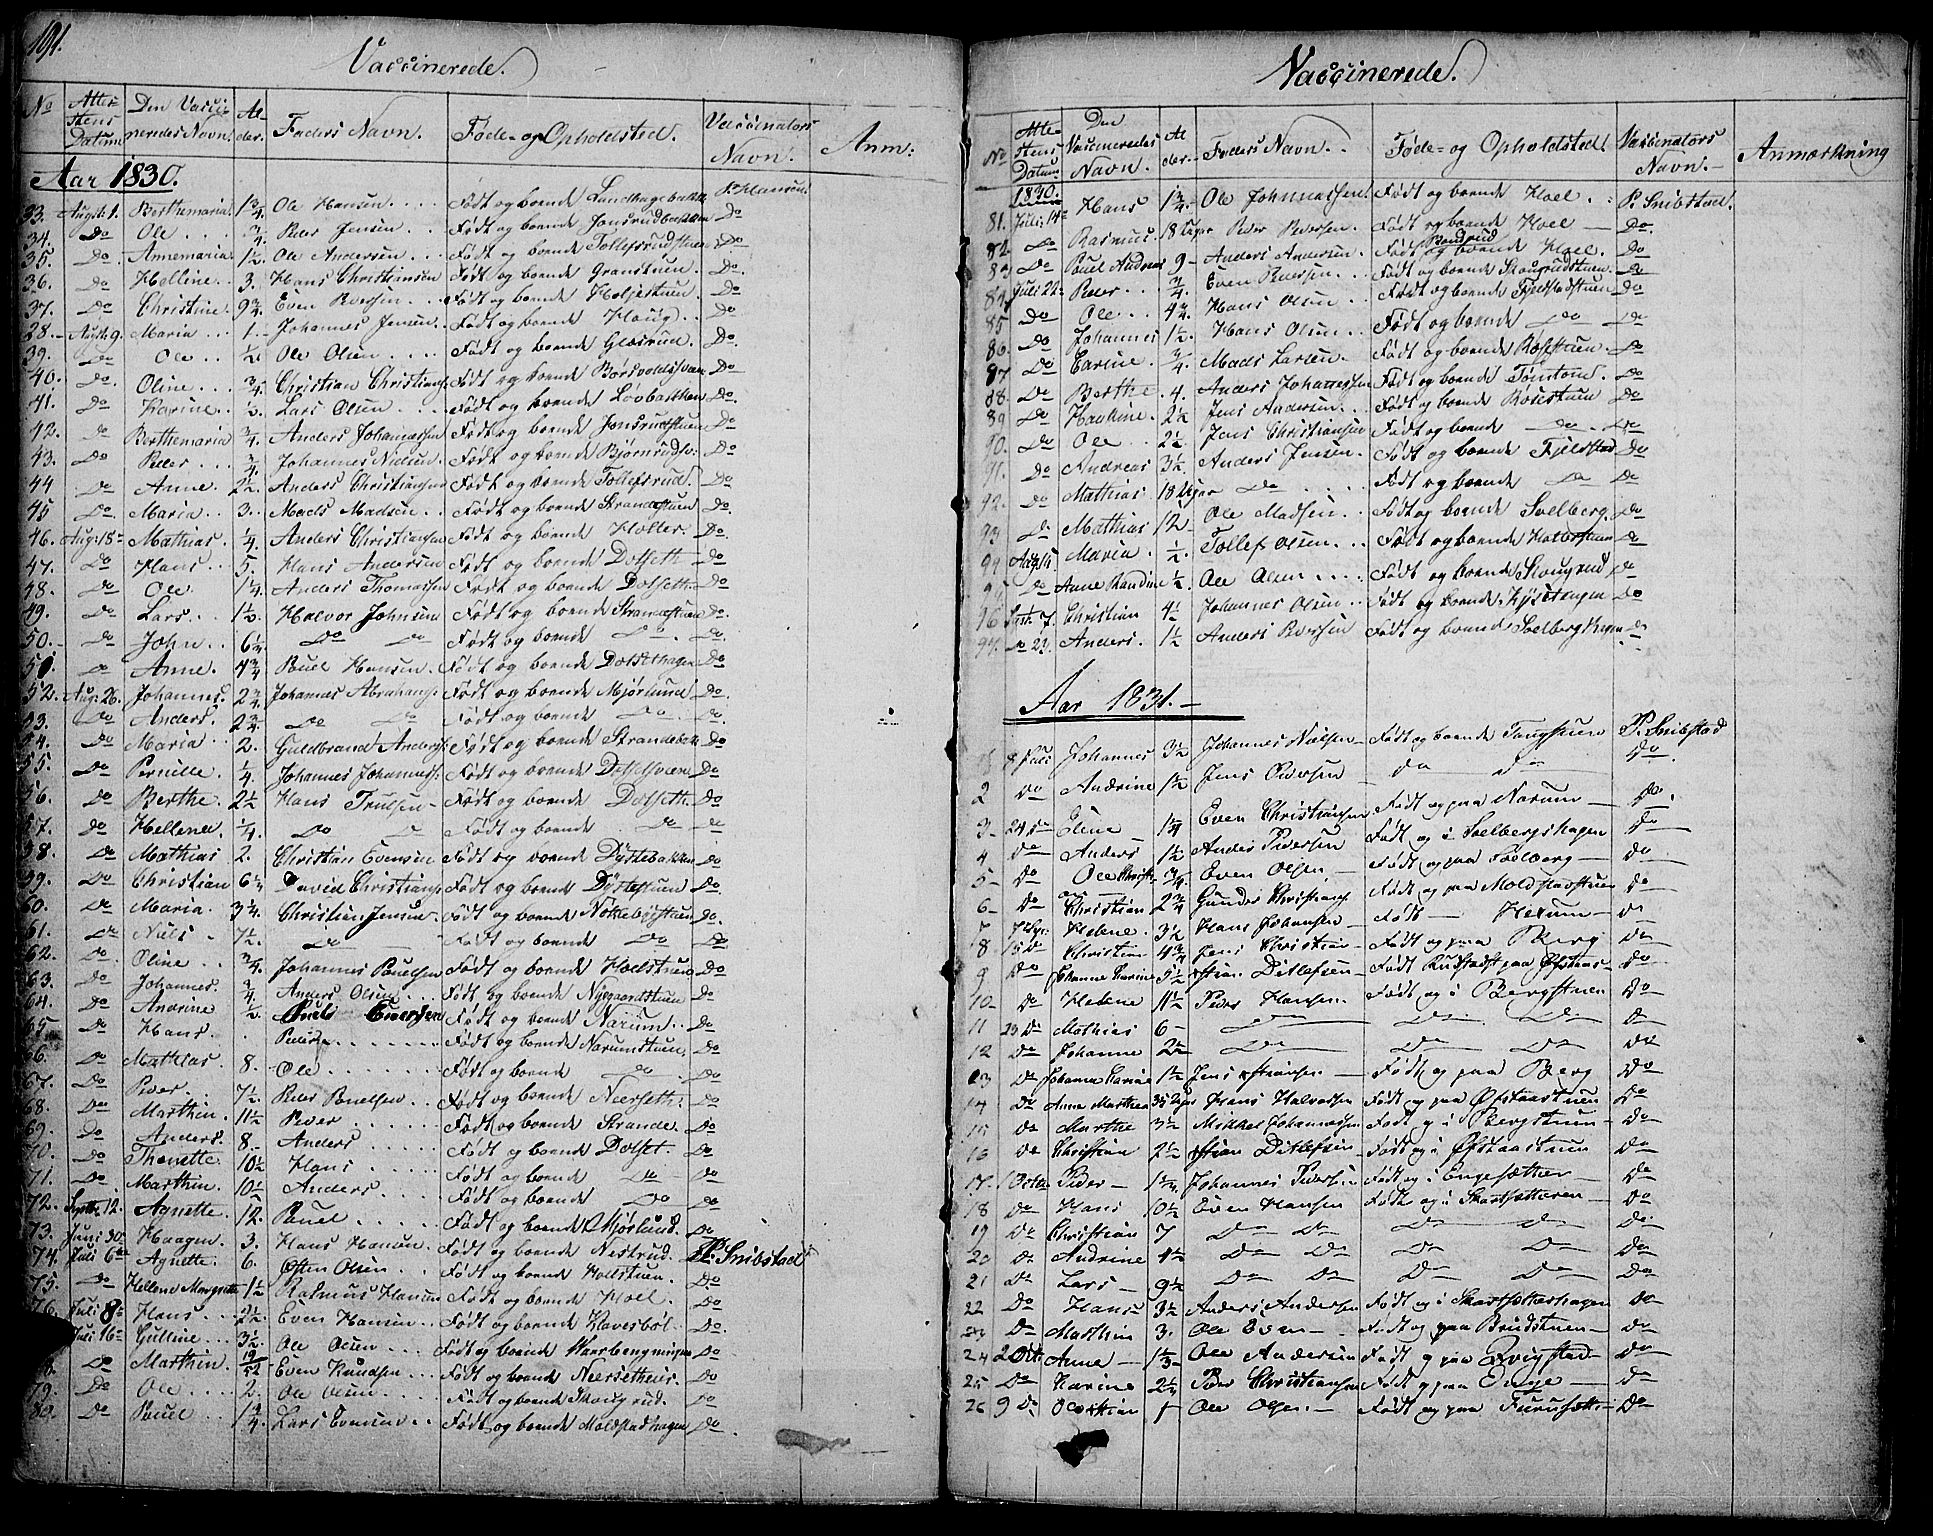 191.
Vaccinerede.
No Atte-stens Datum Den Vacci-neredes Navn. Al-der. Faders Navn. Føde- og Opholdsted. Vaccinators Navn. Anm:
Aar 1830.
33. Augst: 1. Berthemaria. 1 3/4. Ole Hansen Født og boende Landhagebakken P. Hansen.
34. Do Ole 3/4 Peder Jensen Født og boende Jonsrudbakken Do
35. Do Annemaria 1 1/2. Ole Andersen Født og boende Tollefsrudstuen Do
36. Do Helline 3. Hans Christiansen Født og boende Granstuen. Do
37. Do Christine. 9 3/4 Even Født og boende Do
38. Augst 9. Maria 1 Johannes Jensen Født og boende Haug Do
39. Do Ole 1/2 Ole Olsen Født og boende Do
40. Do Oline 3/4. Christian Christians: Født og boende Do
41. Do Karine 1/2. Lars Olsen Født og boende Løvbakken Do
42. Do Berthemaria 3/4. Anders Johannessen Født og boende Jonsrudstuen Do
43. Do Peder 3/4 Johannes Nielsen. Født og boende Bjørnsrudsv: Do
44 Do Anne 2 1/2. Anders Christiansen Født og boende Tollefsrud. Do
45 Do Maria 3. Mads Madsen Født og boende Strandestuen Do.
46. Aug: 18 Mathias. 1/4. Anders Christiansen Født og boende Holler. Do
47. Do Hans 5. Hans Andersen Født og boende Dolseth Do
48. Do Ole 1 1/4 Anders Thomassen Født og boende Dolseth Do
49. Do Lars 1 1/2. Halvor Johnsen Født og boende Strandestuen Do
50. Do John 6 1/4 Do Do Født og boende Do Do
51. Do Anne. 4 3/4 Pouel Hansen. Født og boende Dolsethhagen Do
52. Aug: 26. Johannes. 2 3/4. Johannes Abrahams: Født og boende Mjørlund Do
53. Do Anders. 2 3/4 Do Do Født og boende Do Do
54. Do Maria 2. Guldbrand Anders: Født og boende Strandebak: Do
55. Do Pernille. 1/4 Johannes Johannes: Født og boende Do
56. Do Berthe. 2 1/2 Hans Truelsen Født og boende Dolseth. Do
57. Do Hellene 1/4. Do Do Født og boende Do Do
58. Do Mathias 2. Christian Evensen Født og boende Dystebakken Do
59. Do Christian 6 1/4 David Christians: Født og boende Dystestuen Do
60. Do Maria. 3 1/4. Christian Jensen Født og boende Do
61. Do Niels 7 1/2. Do Født og boende Do Do
62. Do Oline 3/4. Johannes Pouelsen Født og boende Hoelstuen Do
63. Do Johannes. 3/4 Anders Olsen Født og boende Nygaardstuen Do
64. Do Andrine 1/2 Niels Evensen Født og boende Narum Do
65. Do Hans Peder Født og boende Narumstuen Do
66. Do Mathias 8. Ole Født og boende Do Do
67. Do Peder 7 1/2. Peder Pouelsen Født og boende Neerseth. Do
68. Do Marthin 11 1/2 Peder Født og boende Strande. Do
69. Do Anders. 8 Anders Født og boende Dolset. Do
70. Do Thonette. 10 1/2 Hans Født og boende Do Do
71. Do Marthin. 10 1/2 Anders Født og boende Do Do
72. Septbr 12. Agnette. 12. Pouel Født og boende Mjørlund. Do
73. Juni 30 Haagen 3. Hans Hansen. Født og boende Nestrud. P. Snibstad
74. Juli 6 Agnette. 6. Østen Olsen Født og boende Holtstuen. Do
75. Do Hellene Margrethe 1 1/2 Rasmus Hansen Født og boende Hoel. Do
76. Juli 8 Hans 2 1/2 Even Hansen Født og boende Do
Juli 16 Gulline 3 1/2 Ole Olsen Født og boende Do
Do Marthin Even Knudsen Født og boende Do
79. Do Ole 2. Ole Olsen Født og boende Skougrud. Do
80. Do Pouel 1 3/4 Lars Evensen Født og boende Moldstadhagen Do
Vaccinerede.
No Atte-stens Datum Den Vaccineredes Navn. Al-der. Faders Navn. Føde- og Opholdsted. Vaccinators Navn. Anmærkning
1830.
81. Juli: 14 Hans 1 3/4 Ole Johannessen Født og boende Hoel P. Snibstad.
82. Do Rasmus 18 Uger Peder Pedersen Født og boende Hoel Do.
83. Do Pouel Andreas 9 Anders Andersen Født og boende Hoel. Do
84. Juli 22 Peder 3/4. Even Pedersen. Født og boende Skougrudstuen. Do
85 Do Ole 4 3/4 Hans Olsen Født og boende Fjeldstadstuen Do
86. Do Johannes 1 1/2. Hans Olsen Født og boende Do Do
87 Do Carine 3/4. Mads Larsen. Født og boende Do
88. Do Berthe 4. Anders Johannessen Født og boende Do
89 Do Haakine. 2 1/2 Jens Andersen Født og boende Do
90. Do Ole 2 1/2. Jens Christiansen Født og boende Do Do
91. Do Andreas 3 1/2. Anders Jensen. Født og boende Fjeldstad Do
92. Do Mathias 18 Uger Do Født og boende Do Do
93. Do Mathias 12 Ole Madsen Født og boende Soelberg. Do
94 Aug 15 Maria 1/2. Tollef Olsen Født og boende Do
95 Do Anne Randine 1/2. Ole Olsen Født og boende Skougrud Do
96 Sept: 7. Christian 4 1/2 Johannes Olsen Født og boende Do
97. Do 27. Anders. 1 1/2 Anders Født og boende Soelberghagen Do
Aar 1831.
1 8 Juli Johannes 3 1/2 Johannes Nielsen Født og boende P. Snibstad
2 Do Andrine 1 1/2 Jens Pedersen Do Do Do
3 24 Do Elene 1 3/4 Even Christiansen Født og paa Narum Do
4 Do Anders 1 1/2 Anders Pedersen Født og i Soelbergshagen Do
5 Do Ole Christi: 3/4 Even Olsen Født og paa Soelberg Do
6 Do Christian 2 3/4 Gunder Christians: Født og paa Moldstadstuen Do
7 Helene 3 1/2 Hans Johansen Født Do
8 15 Do Christian 4 3/4 Jens Christian Født og paa Berg Do
9 Do Johanne Karine 5 1/2 Stian Ditlefsen Født Do
10 Do Helene 11 1/2 Peder Hansen Født og i Bergstuen Do
11 23 Do Mathias 6 Do Do Do Do
12 Do Johanne 2 1/2 Do Do Do Do
13 Do Johanne Karine 1 1/2 Jens Født og paa Berg Do
14 Do Anne Marthea 35 Uger Hans Halvorsen Født og paa Øfstaastuen Do
15 Do Marthe 3 1/2 Mikkel Johannessen Født og i Bergstuen Do
16 Do Christian 2 1/2 Stian Ditlefsen Født og i Øfstaastuen Do
17. 1 Octbr Peder 1 3/4 Johannes Pedersen Født og i Engesætter Do
18 Do Hans 10 1/2 Even Hansen Født og i Do
19 Do Christian 7 Do Do Do Do Do
20 Do Andrine 4 1/2 Do Do Do Do Do
21 Do Lars 9 1/2 Do Do Do Do Do
22 Do Hans 3 1/2 Anders Andersen Født og i Do
23 Do Marthin 3. Ole Even Født og paa Do
24 2 Oct: Anne 1 1/3 Ole Andersen Født og paa Qvigstad Do
25 Do Karine 2 1/2 Peder Christiansen Født og paa Enge Do
26 9 Do 1 Ole Olsen Født og paa Do